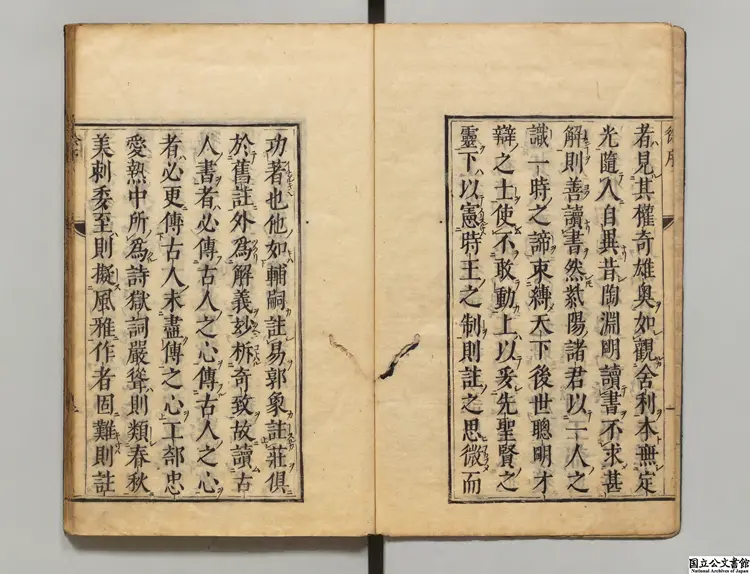 者見其權奇雄奥如觀舍利本無定
光隨入自異昔陶淵明讀書不求甚
解則善讀書然紫陽諸君以一人之
識一時之諦束縛天下後世聰明才
辯之士使不敢動上以妥先聖賢之
靈下以憲時王之制則註之思微而
功著也他如輔嗣註易郭象註莊俱
於舊註外為解義妙析奇致故讀古
人書者必傳古人之心傳古人之心
者必更傳古人未盡傳之心工部忠
愛熱中所為詩獄詞嚴聳則類春秋
美刺委至則擬風雅作者固難則註
国立公文書館
National Archives of Japan